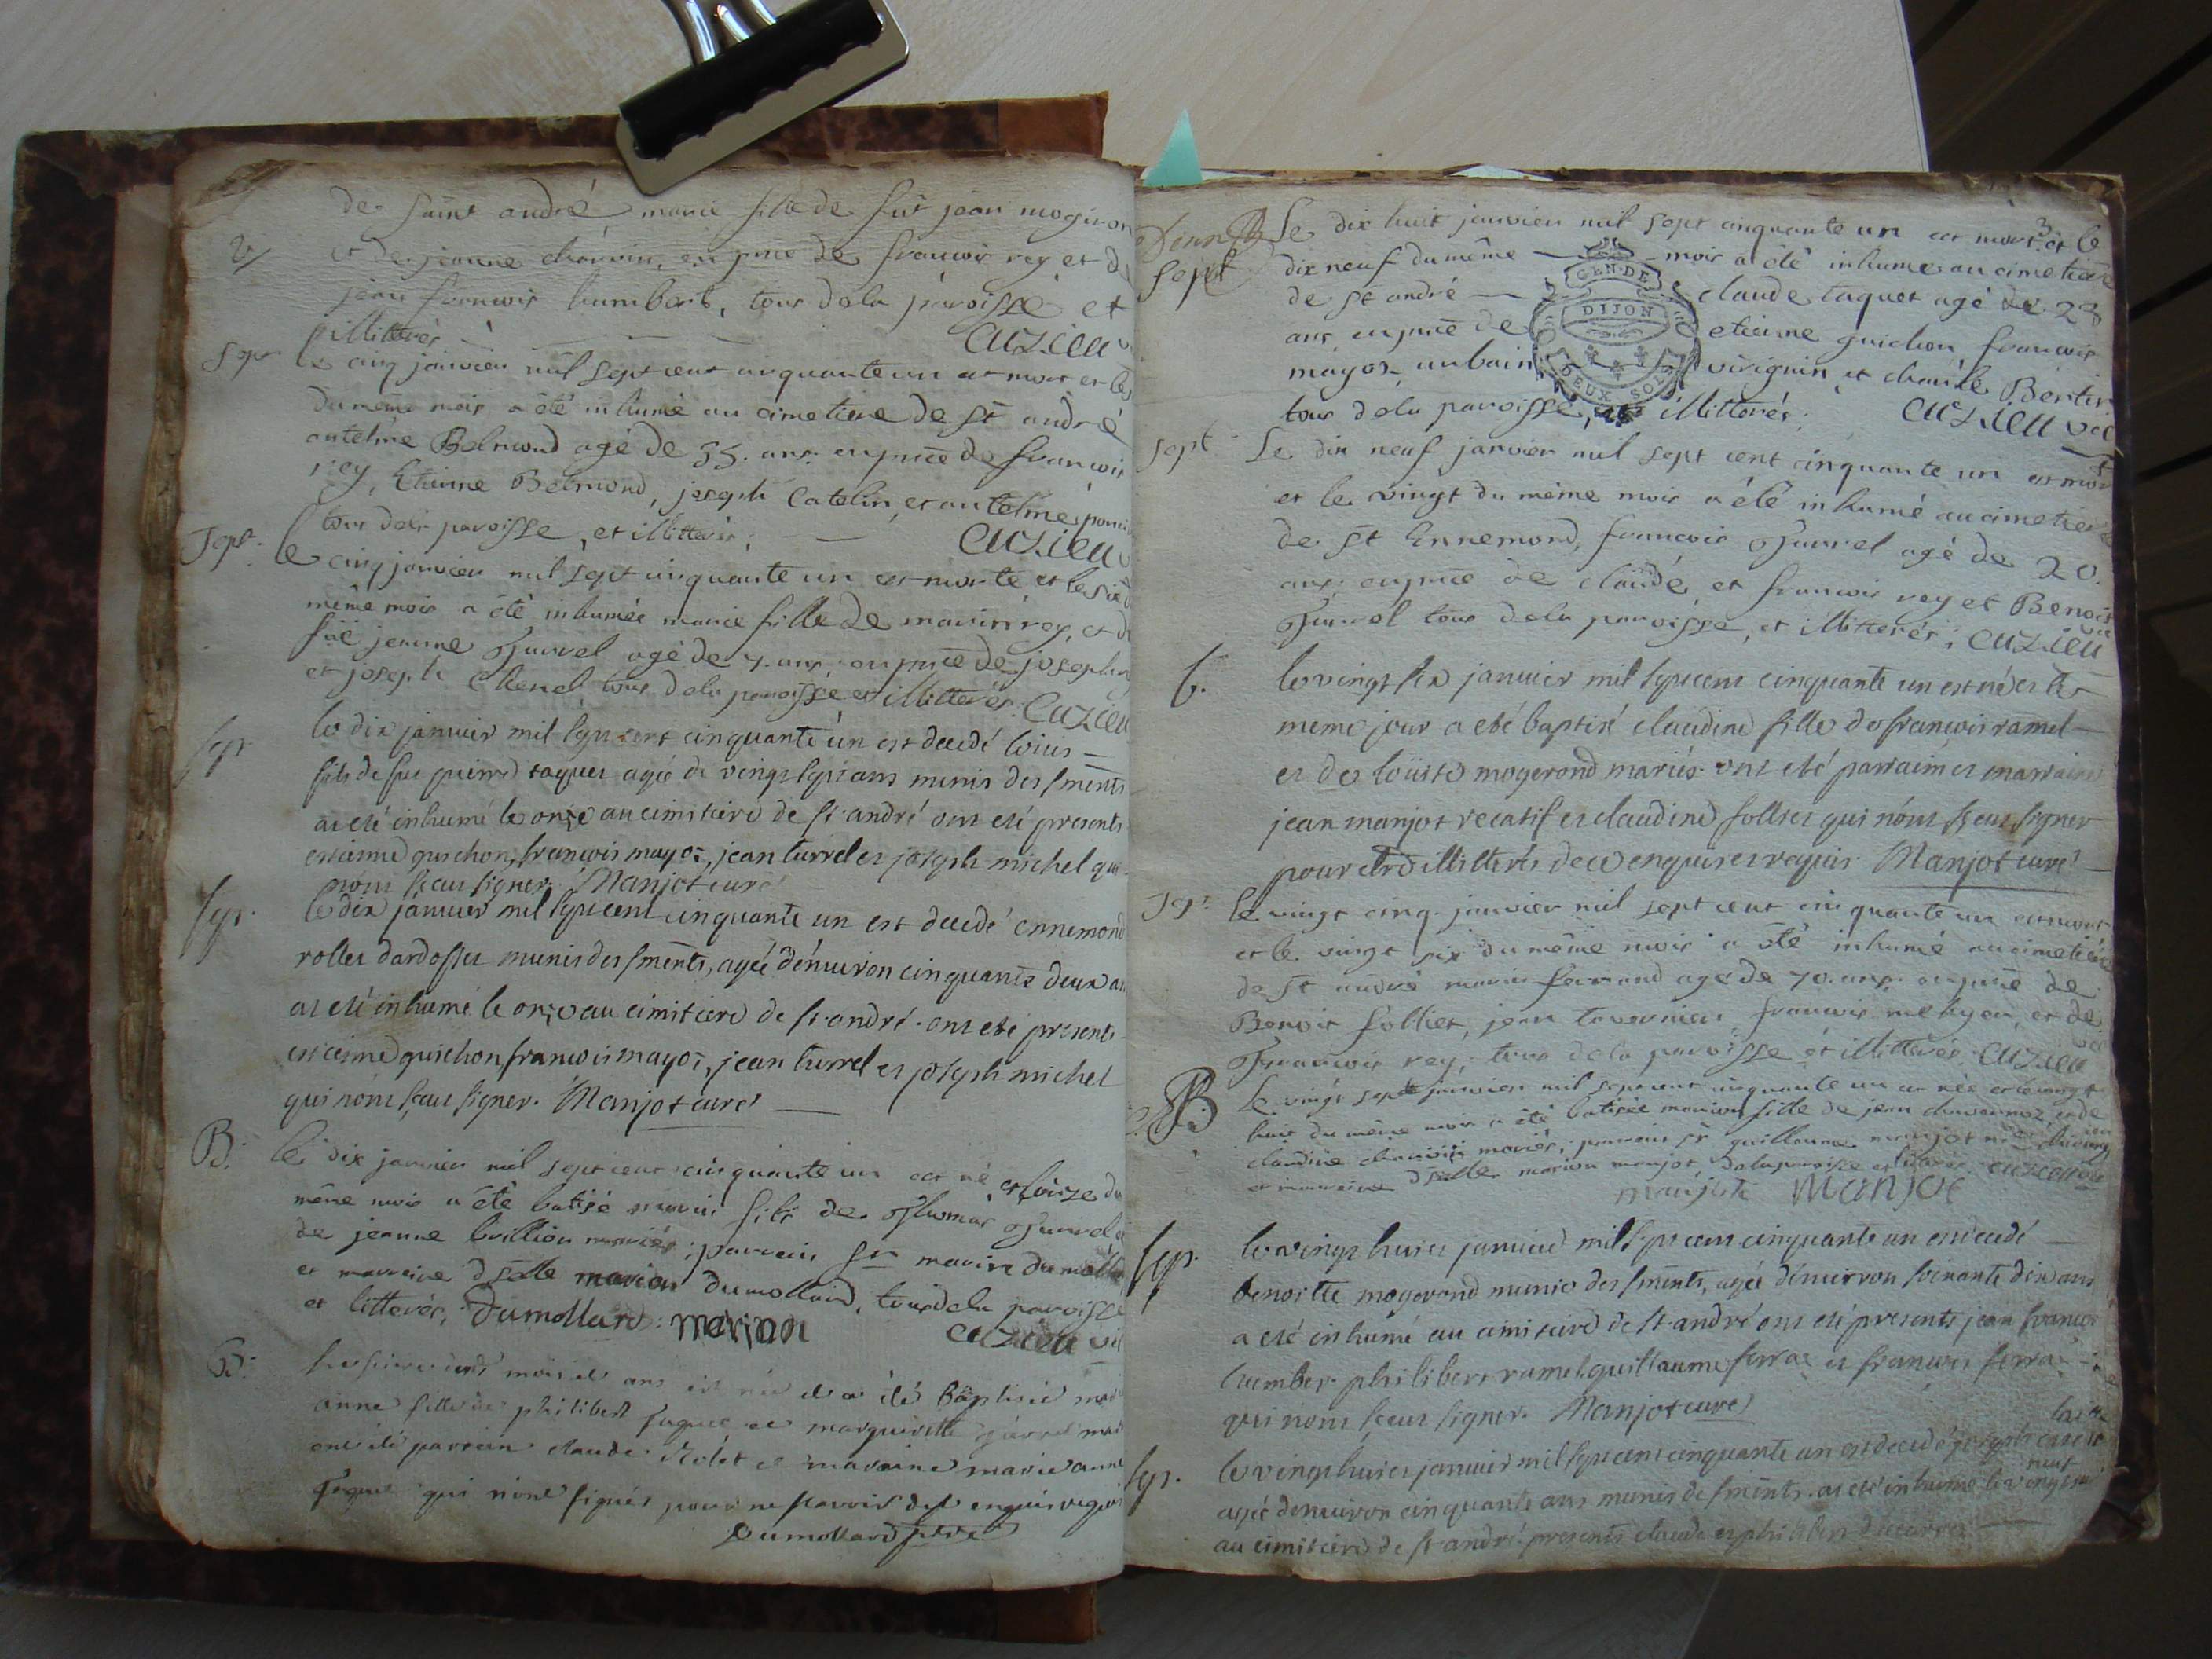 de saint andré marie fille de fut jean mogiron
et de jeanne charvin, en pnce de francois rey et d
jean francois humbert, tous dela paroisse et
illitterés
cuzieu
Sept
le cinq janvier mil sept cent cinquante un est mort et le
du meme mois a été inhumé au cimetiere de st andré
antelme Belmond agé de 35. ans. en pnce de francois
rey, Etienne Belmond, joseph Catelin, et antelme
tous dela paroisse, et illitterés;
cuzieu
Sept.
le cinq janvier mil sept cinquante un est morte et le six
même mois a été inhumée marie fille de marin rey, et d
füe jeanne Gurrel agé de 7. ans en pnce de joseph
et joseph Chenel tous dela paroisse et illitterés. Cuzieu
Sept
le dix janvier mil sept cent cinquante un est decedé loüis
fils de feu pierre taquet agé de vingt sept ans munis des sments
at eté inhumé le onze au cimitiere de st andré ont eté presents
estienne guichon, francois mayoz, jean turrel et joseph michel qui
n'ont sceu signer. Manjot curé
Sept.
le dix janvier mil sept cent cinquante un est decedé ennemond
rollet dardosset munis des sments, agé d'enuiron cinquante deux an
at eté inhumé le onze au cimitiere de st andré. ont eté presents
estienne guichon francois mayoz, jean turrel et joseph michel
qui n'ont sceu signer. Manjot curé
B.
le dix janvier mil sept cent cinquante un est né, et le onze du
même mois a été batisé marin fils de thomas Gurrel et
de jeanne brillion mariés; parrain sr marin dumollard
et marreine dselle marion dumollard, tous dela paroisse
et litterés; Dumollard marion cuzieu vic
B.
mois et ans est née et a été baptisée mar
anne fille de philibert taquet et marguerite
ont été parrain claude Rolet et maraine marie anne
taquet qui n'ont signés pour ne scavoir de ce enquis requis
Dumollard ptre
3
Sept
Le dix huit janvier mil sept cinquante un est mort et le
dix neuf du même mois a été inhumé au cimetiere
de st andré claude taquet agé de 28
GEN. DE
DIJON
DEUX SOLS
ans, en pnce de etienne guichon, francois
mayoz, urbain virignin et charle Bertin
tous dela paroisse, et illitterés; cuzieu vic
Sept
Le dix neuf janvier mil sept cent cinquante un est mort
et le vingt du même mois a été inhumé au cimetiere
de st Ennemond, francois Gurrel agé de 20.
ans. en pnce de claude, et francois rey et Benoit
Gurrel tous dela paroisse, et illitterés; cuzieu vic
b.
le vingt six januier mil sept cent cinquante un est né et le
meme jour a eté baptisé claudine fille de francois ramel
et de loüise mogerond mariés ont eté parraim et marraine
jean manjot recatif et claudine follier qui n'ont sceu signer
pour etre illitterés de ce enquis et requis Manjot curé
Sept
le vingt cinq janvier mil sept cent cinquante un est mort
et le vingt six du même mois a été inhumé au cimetiere
de st andré marin ferrand agé de 70. ans. en pnce de
Benoit folliet, jean tavernier, francois et de
francois rey, tous dela paroisse et illitterés cuzieu vic
B
Le vingt sept janvier mil sept cent cinquante un est née et le vingt
huit du même mois a été batisée marion fille de jean et de
claudine charvin mariés; parrain sr guillaume manjot
et marreine dselle marion manjot, dela paroisse et litterés cuzieu vic
manjot Manjot
Sept.
le vingt huict januier mil sept cent cinquante un est decedé
benoitte mogerond munie des sments, agée d'enuiron soixante dix ans
a eté inhumé au cimitiere de st andré ont eté presents jean francois
humber philibert ramel guillaume ferraz et francois ferraz
qui n'ont sceu signer. Manjot curé
Sept.
le vingt huict januier mil sept cent cinquante un est decedé joseph
agé d'enuiron cinquante ans munis des sments. at eté inhumé le vingt neuf
au cimitiere de st andré. presents claude et philibert